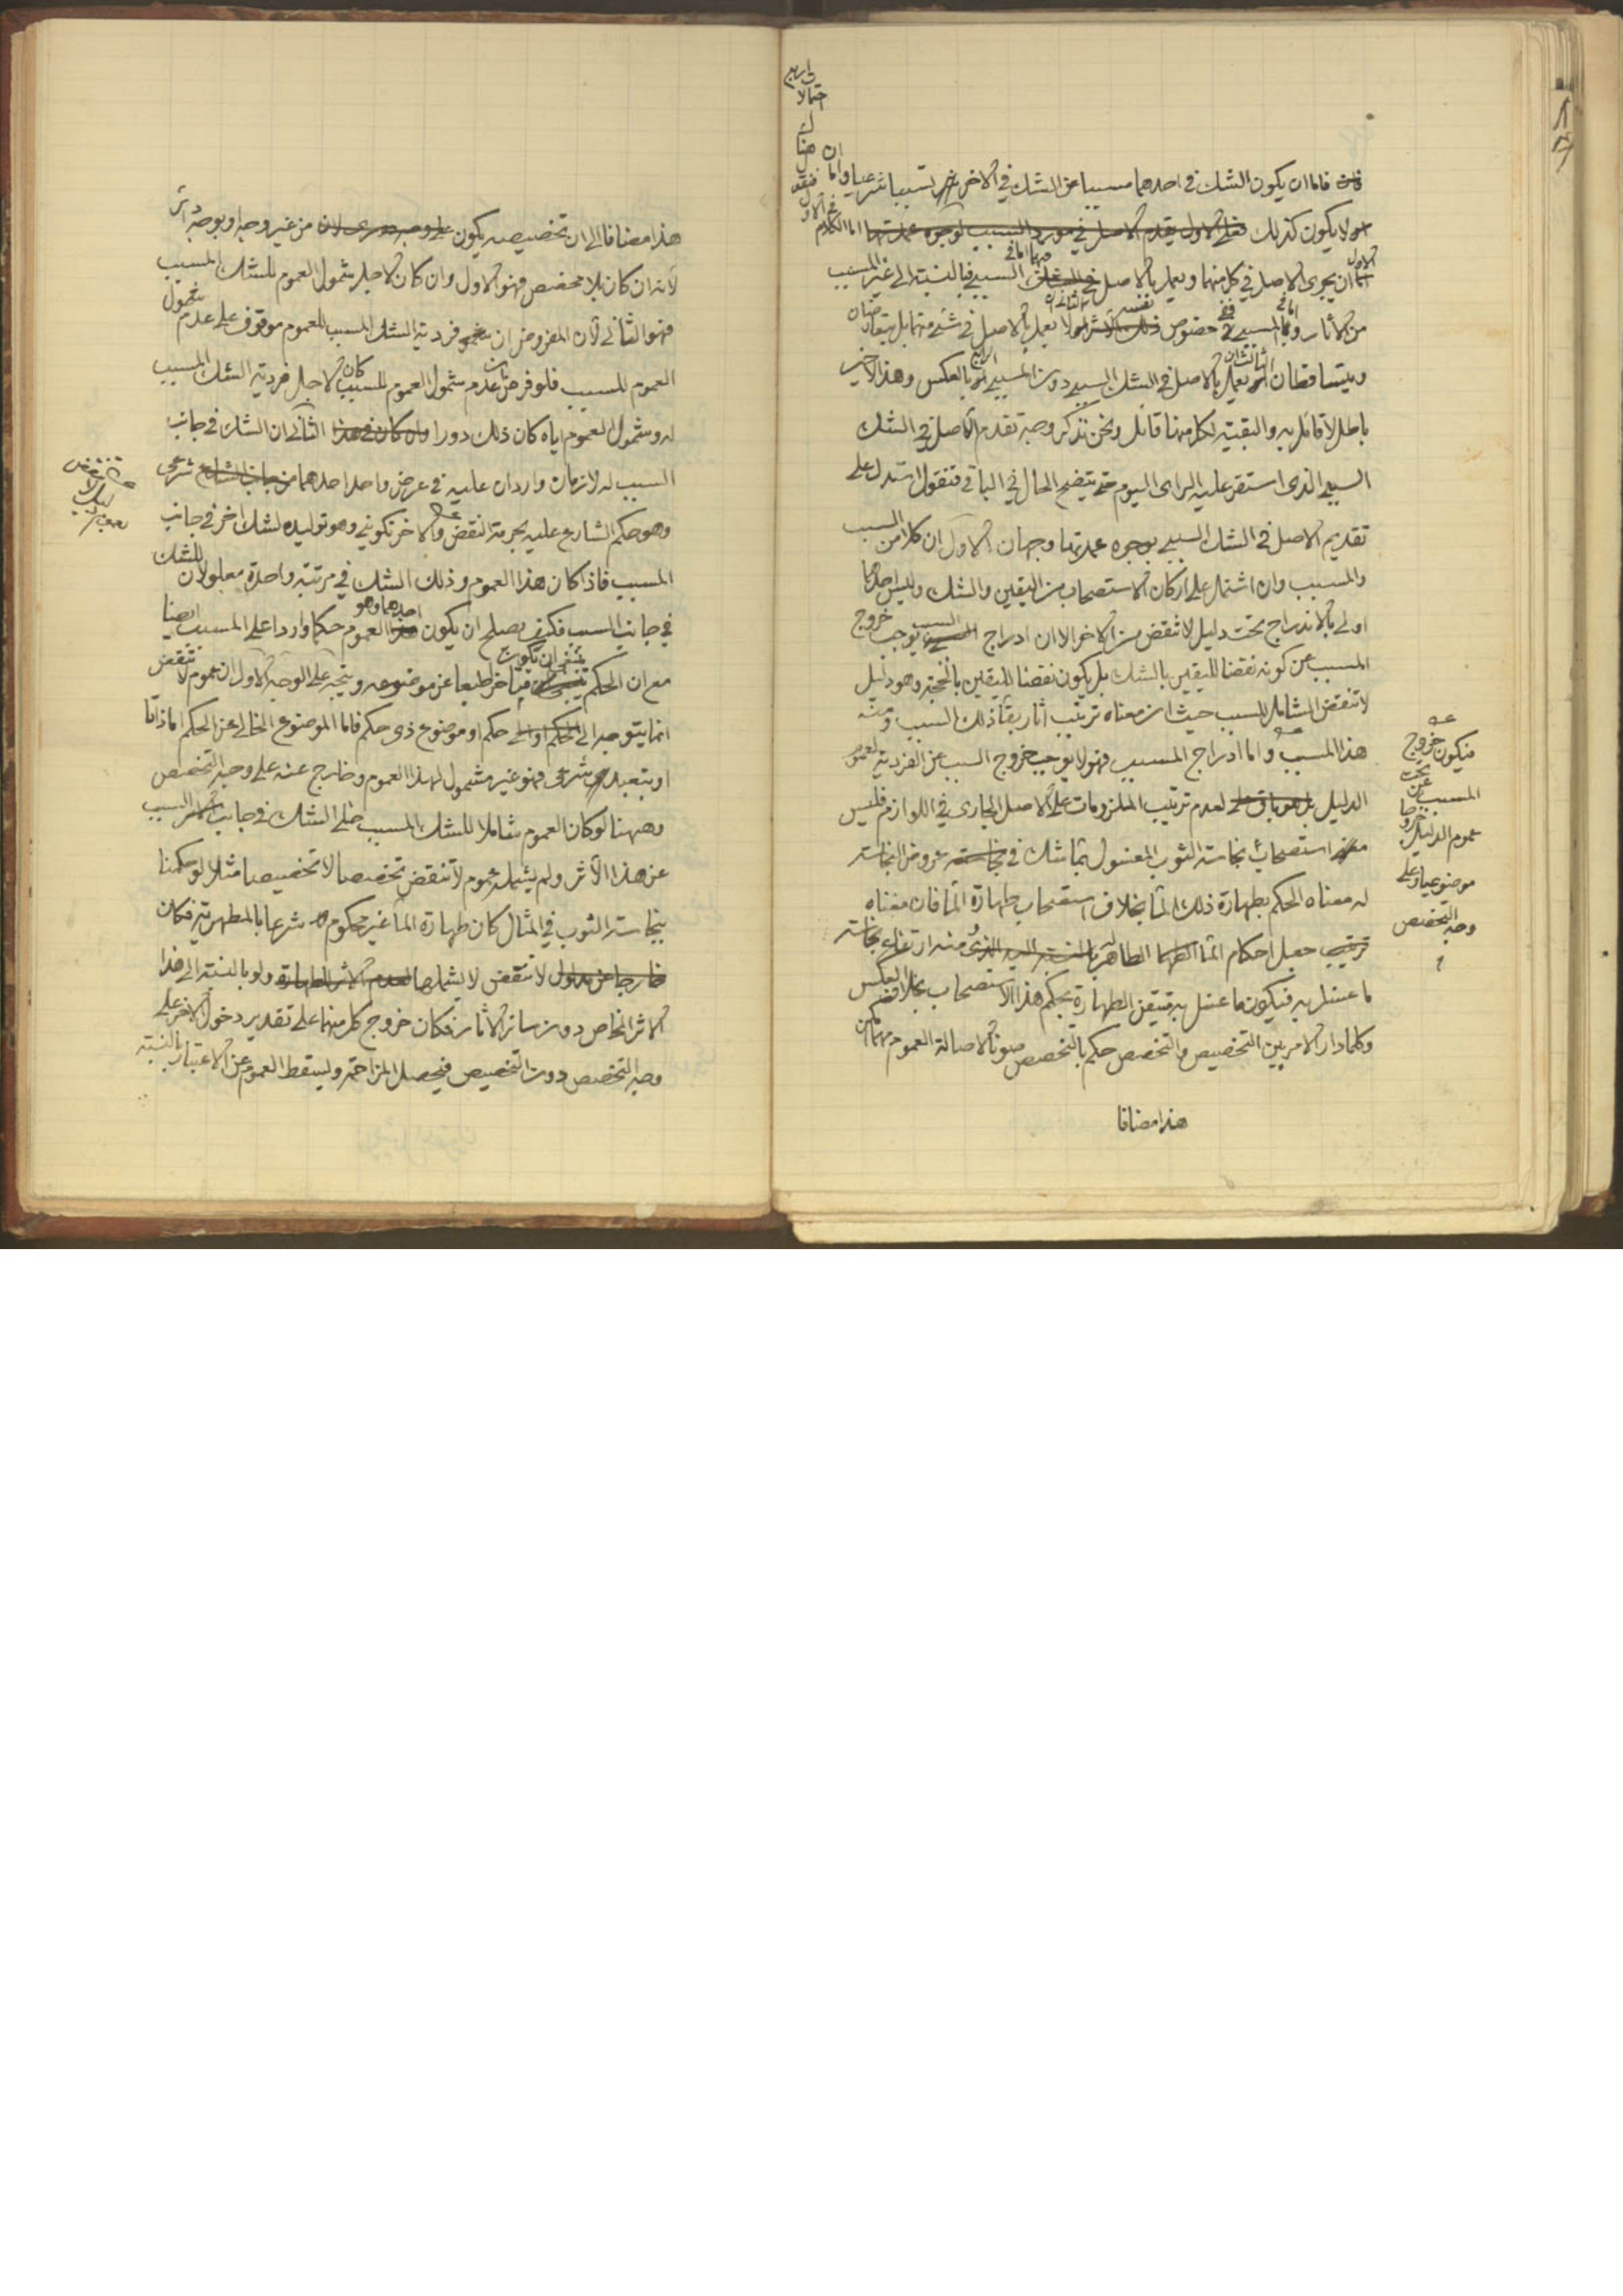 فاما ان يكون الشك فى احدهما مسببا عن الشك فى الاخر تسببا شرعيا واما
لا يكون كذلك فعلى الاول يقدم الاصل فى مورد السبب لوجوه عمدتها اما الكلام فى الاول
فنقول ان هنا احتمالات اربع
الاول ان يجرى الاصل فى كل منهما ويعمل بالاصل فيهما اما فى السببى فبالنسبة الى غير المسبب
من الاثار واما فى المسببى ففى خصوص نفسه الثانى ان لا يعمل بالاصل فى شئ منهما بل يتعارضان
ويتساقطان الثالث ان يعمل بالاصل فى الشك السببى دون المسببى الرابع بالعكس وهذا الاخير
باطل لا قائل به والبقية لكل منها قائل ونحن نذكر وجه تقدم الاصل فى الشك
السببى الذى استقر عليه الراى اليوم حتى يتضح الحال فى الباقى فنقول استدل على
تقديم الاصل فى الشك السببى بوجوه عمدتها وجهان الاول ان كلا من السبب
والمسبب وان اشتمل على اركان الاستصحاب من اليقين والشك وليس احدهما
اولى بالاندراج تحت دليل لا تنقض من الاخر الا ان ادراج السبب يوجب خروج
المسبب عن كونه نقضا لليقين بالشك بل يكون نقضا لليقين بالحجة وهو دليل
لا تنقض الشامل للسبب حيث ان معناه ترتيب اثار بقاء ذلك السبب ومنه
هذا المسبب واما ادراج المسبب فهو لا يوجب خروج السبب عن الفردية لعموم
فيكون خروج
المسبب عن تحت
عموم الدليل خروجا
موضوعيا وعلى
وجه التخصص
الدليل بل هو باق على لعدم ترتيب الملزومات على الاصل الجارى فى اللوازم فليس
استصحاب نجاسة الثوب المغسول بماء شك فى نجاسته عروض النجاسة
له معناه الحكم بطهارة ذلك الماء بخلاف استصحاب طهارة الماء فان معناه
ترتيب جعل احكام الماء الطاهر بالنسبة اليه الذى منه ارتفاع نجاسة
ما غسل به فيكون ما غسل به متيقن الطهارة بحكم هذا الاستصحاب بخلاف العكس
وكلما دار الامر بين التخصيص والتخصص حكم بالتخصص صونا لاصالة العموم مهما امكن
هذا مضافا
هذا مضافا الى ان تخصيصه يكون من غير وجه او بوجه دائر
لانه ان كان بلا مخصص فهو الاول وان كان لاجل شمول العموم للشك المسبب
فهو الثانى لان المفروض ان فردية الشك المسبب للعموم موقوف على عدم شمول
العموم للسبب فلو فرض ان عدم شمول العموم للسبب كان لاجل فردية الشك المسبب
له وشمول العموم اياه كان ذلك دورا الثانى ان الشك فى جانب
السبب له لازمان واردان عليه فى عرض واحد احدهما شرعى
وهو حكم الشارع عليه بحرمة النقض والاخر تكوينى وهو توليده لشك اخر فى جانب
المسبب فاذا كان هذا العموم وذلك الشك فى مرتبة واحدة معلولان للشك
فى جانب السبب فكيف يصلح ان يكون احدهما وهو العموم حكما واردا على المسبب ايضا
مع ان الحكم ينبغى ان يكون متاخرا طبعا عن موضوعه ويتجه على الوجه الاول ان عموم لا تنقض
انما يتوجه الى حكم او موضوع ذى حكم فاما الموضوع الخالى عن الحكم اما ذاتا
او بتعبد شرعى فهو غير مشمول لهذا العموم وخارج عنه على وجه التخصص
وههنا لو كان العموم شاملا للشك المسبب خلى الشك فى جانب السبب
عن هذا الاثر ولم يشمله عموم لا تنقض تخصصا لا تخصيصا مثلا لو حكمنا
بنجاسة الثوب فى المثال كان طهارة الماء غير محكوم شرعا بالمطهرية فكان
خارجا عن مدلول لا تنقض لا يشملها ولو بالنسبة الى هذا
الاثر الخاص دون سائر الاثار فكان خروج كل منهما على تقدير دخول الاخر على
وجه التخصص دون التخصيص فيحصل المزاحمة ويسقط العموم عن الاعتبار بالنسبة